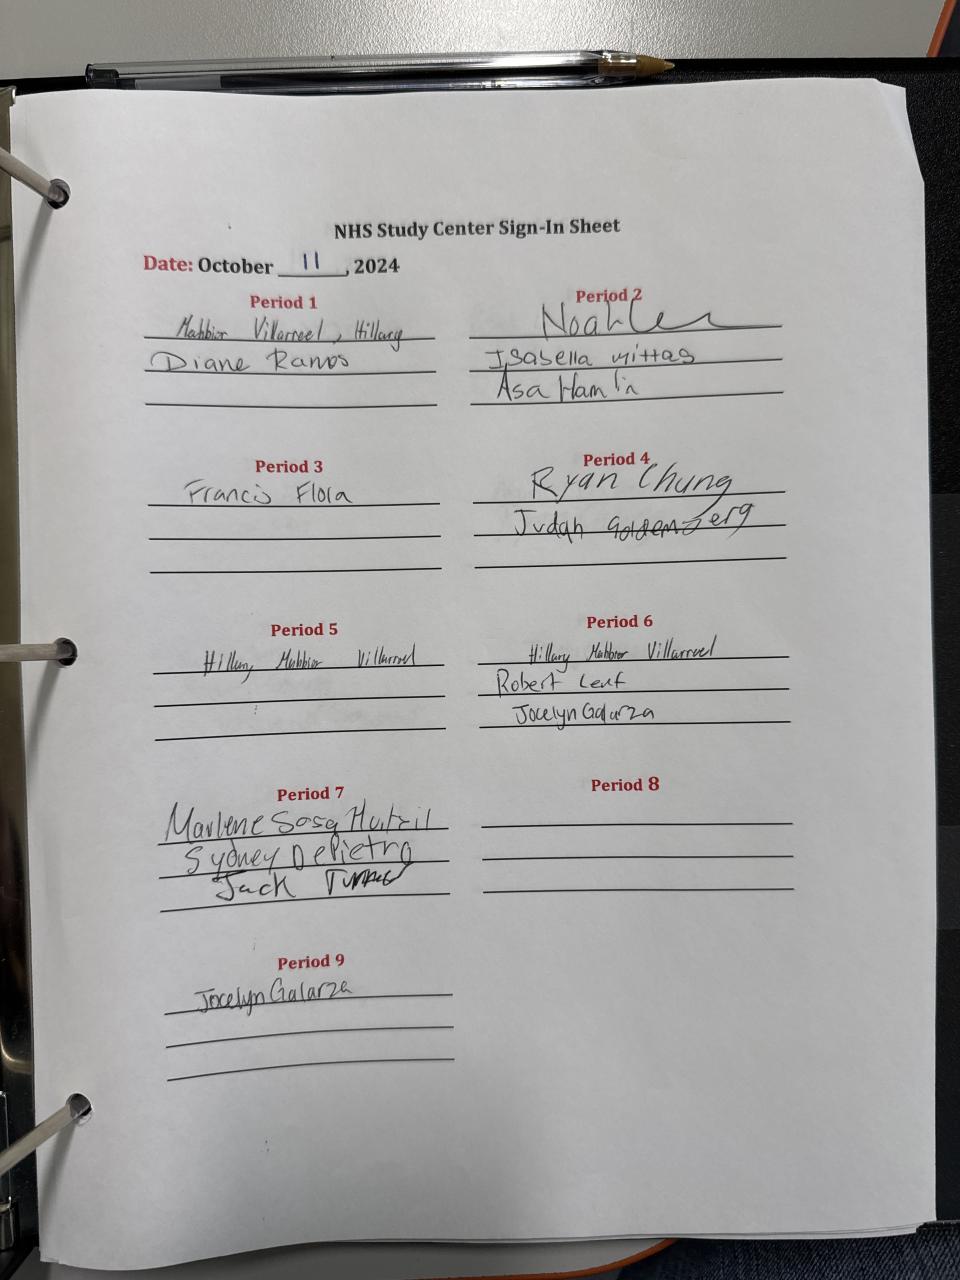 NHS Study Center Sign-In Sheet
Date: October 11, 2024
Period 1
Mahbior Villarreel, Hillary
Diane Ramos
Period 2
Noah
Isabella Mittas
Asa Hamlin
Period 3
Francis Flora
Period 4
Ryan Chung
Judah Goldemberg
Period 5
Hillary Mahbior Villarreel
Period 6
Hillary Mahbior Villarreel
Robert
Jocelyn Galarza
Period 7
Marlene Sosa Huitzil
Sydney DePietro
Jack
Period 8
Period 9
Jocelyn Galarza